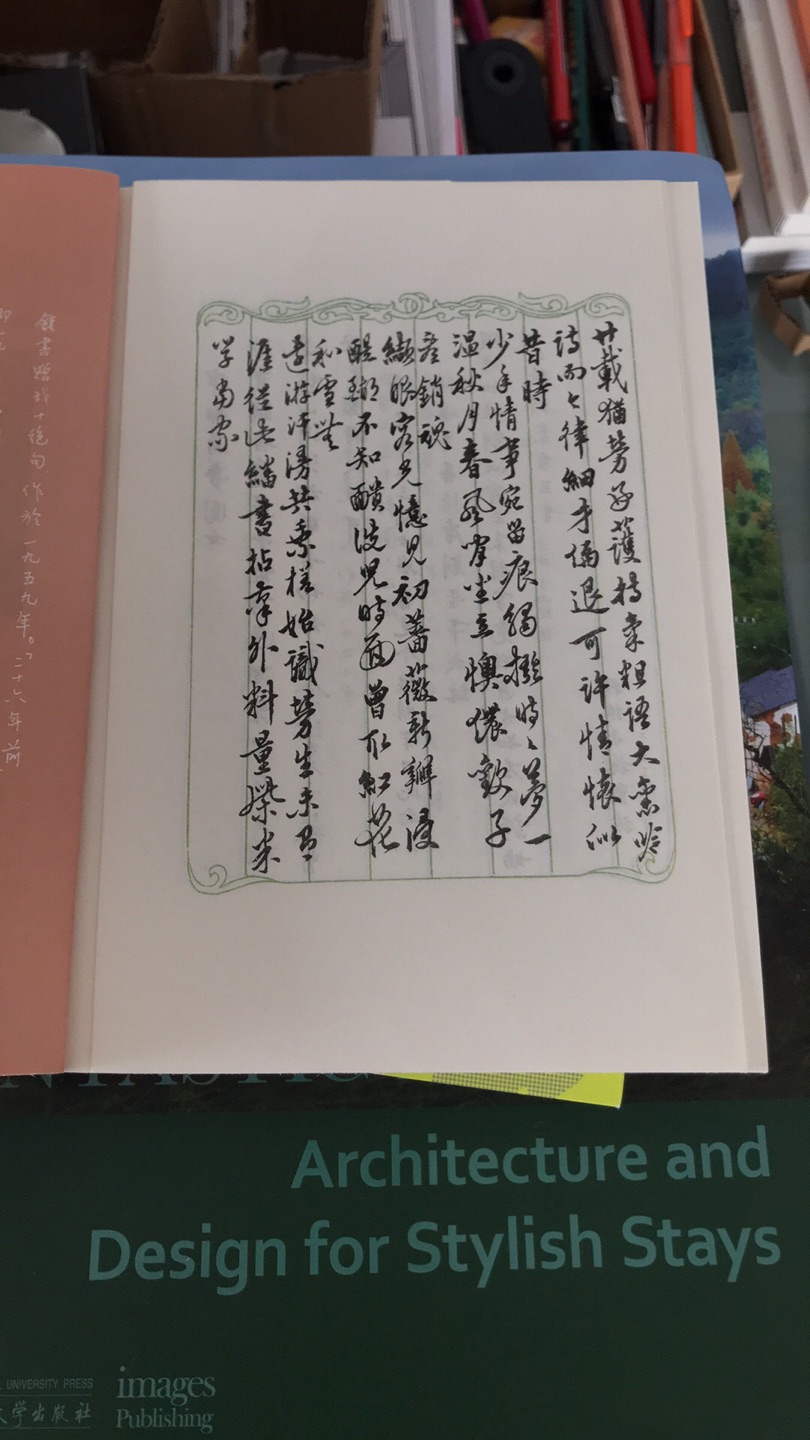 廿載猶勞好護持氣粗語大舊吟
詩而今律細才偏退可許情懷似
昔時
少年情事宛留痕觸撥時〻夢一
溫秋月春風坐立懊儂歡子
銷魂
纈眼容光憶見初薔薇新瓣浸
醍醐不知靧洗兒時面曾取紅花
和雪無
遠游汗漫共乘槎始識勞生未有
涯從此繙書拈筆外料量柴米
学當家
鍾書贈我十絕句,作於一九五九年。」二十六年前
Architecture and
Design for Stylish Stays
UNIVERSITY PRESS
大学出版社
images
Publishing